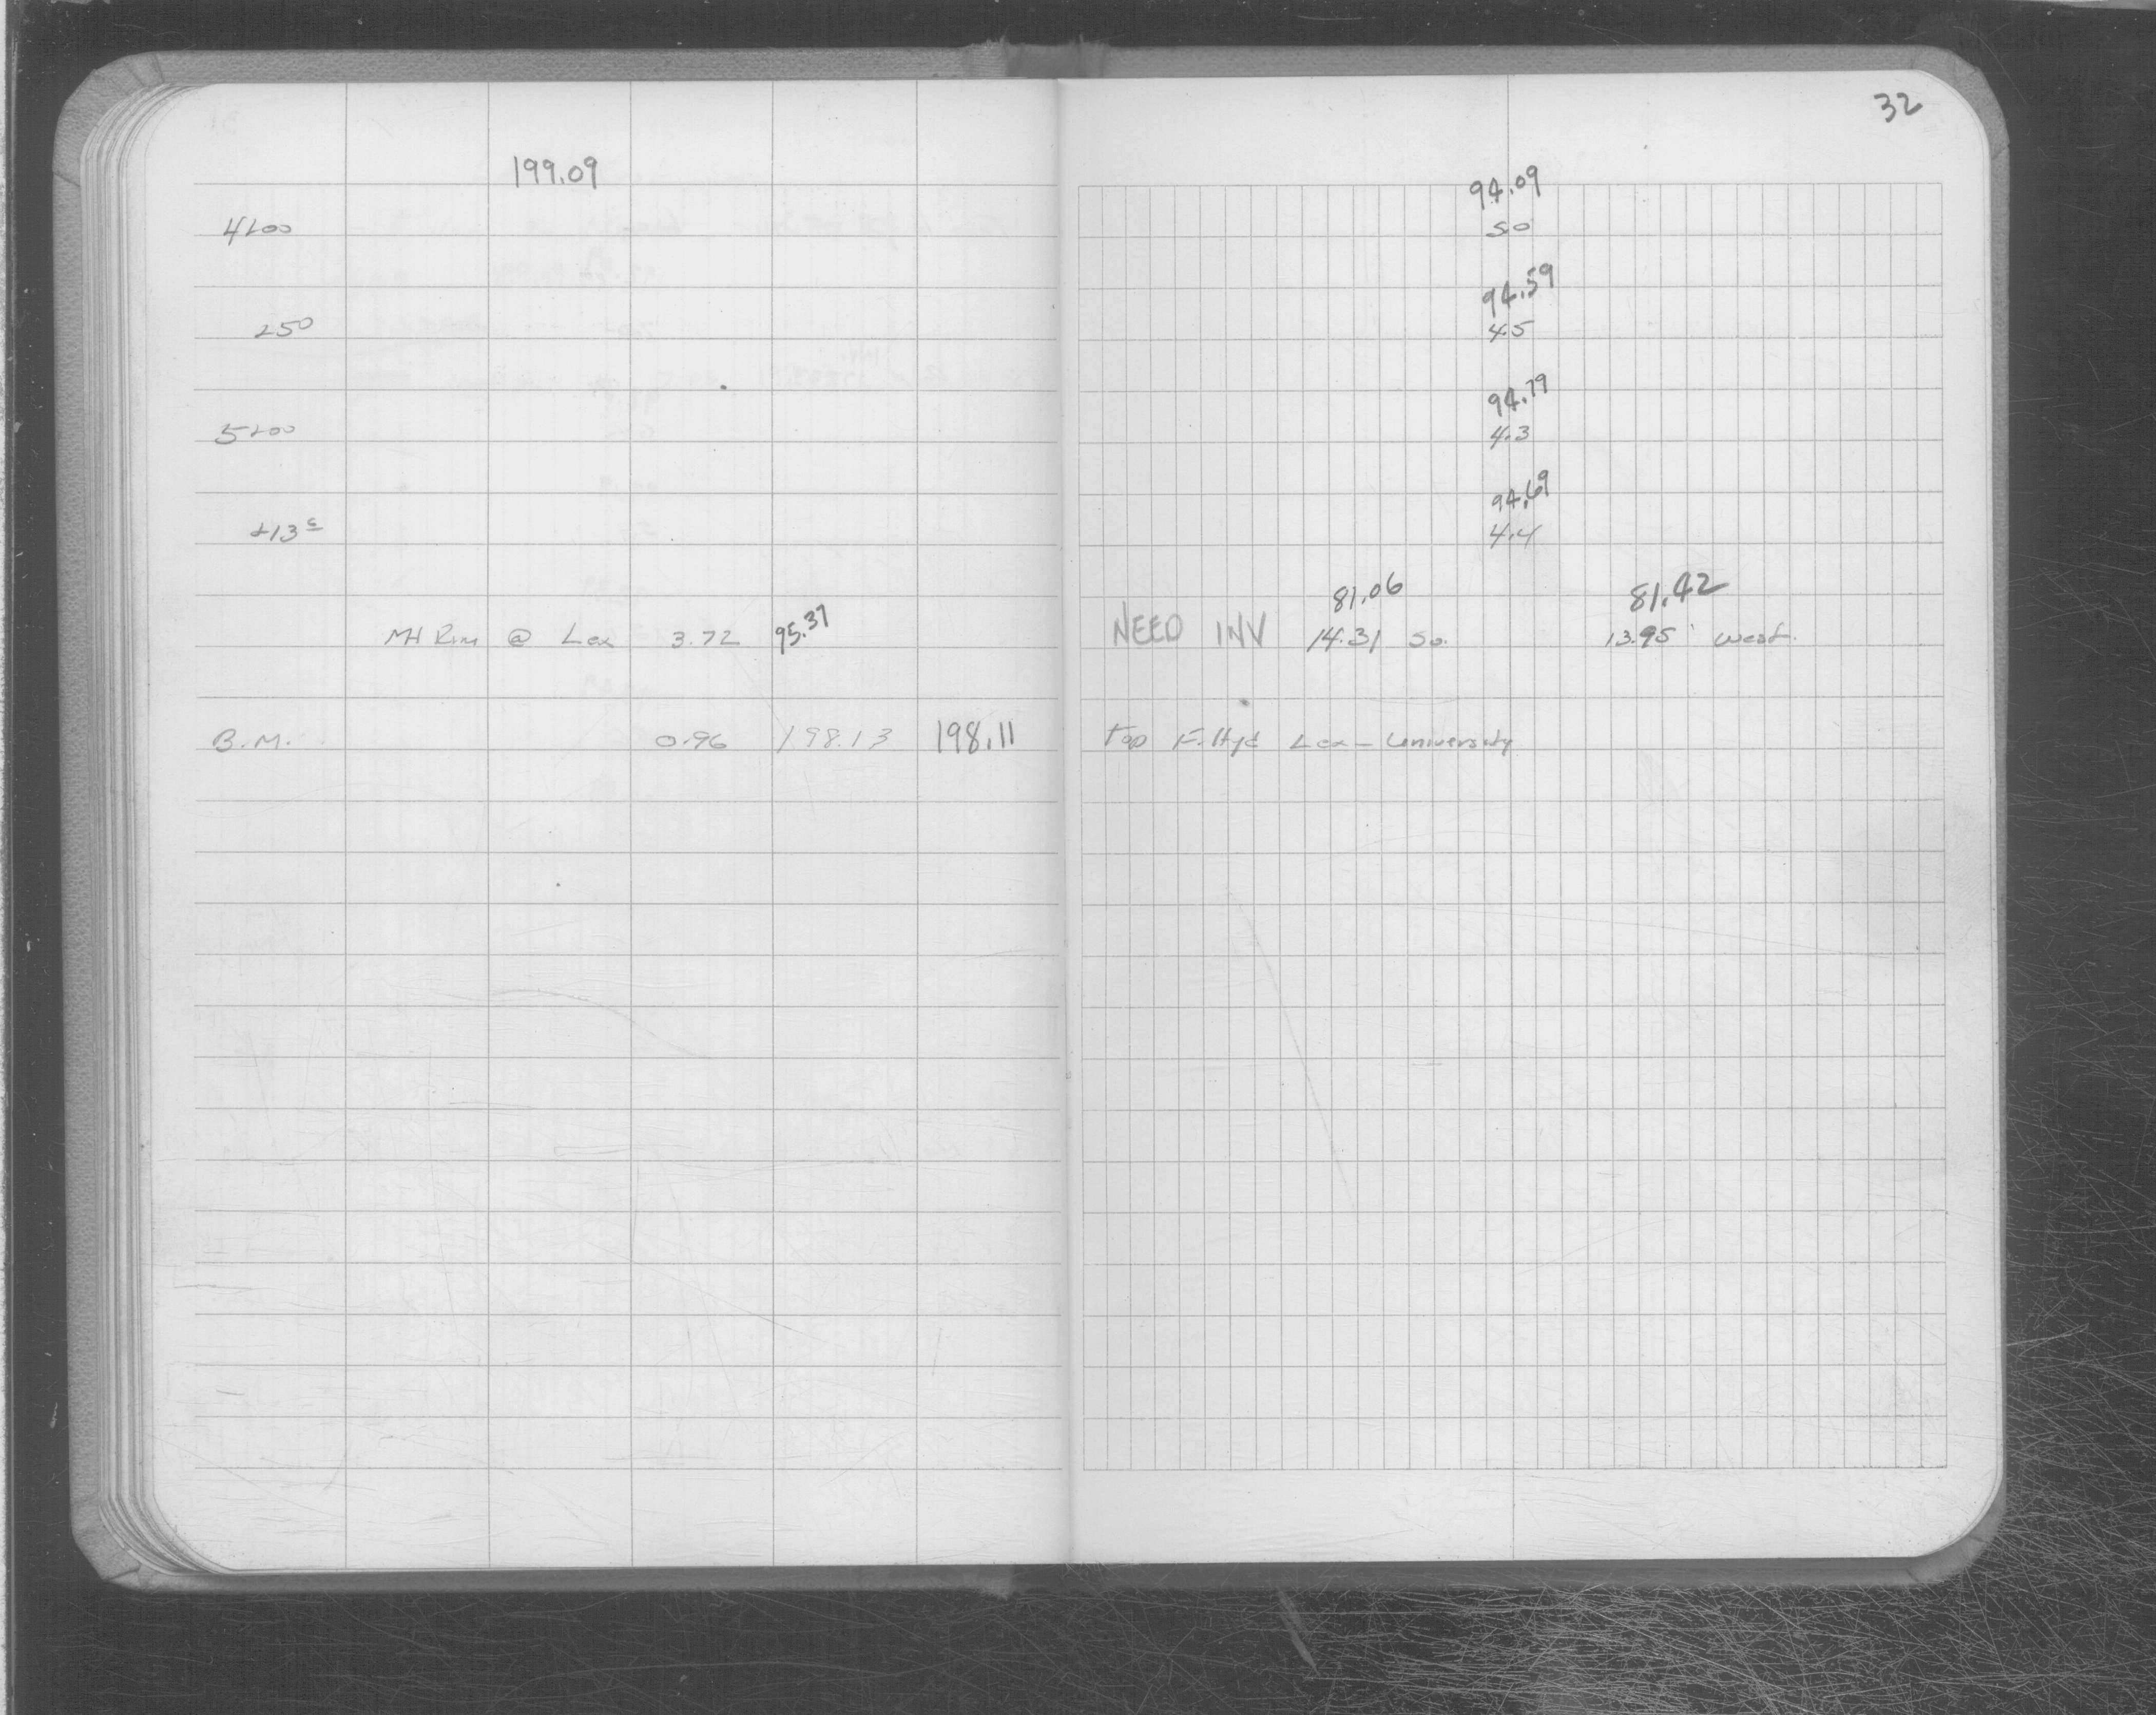 32
199.09
94.09
4+00 50
94.59
+50 4.5
94.79
5+00 4.3
94.69
+13 4.4
81.06 81.42
MH Rim @ Lex 3.72 95.37 NEED INV 14.31 So. 13.95' West.
B.M. 0.96 198.13 198.11 Top F. Hyd Lex - University